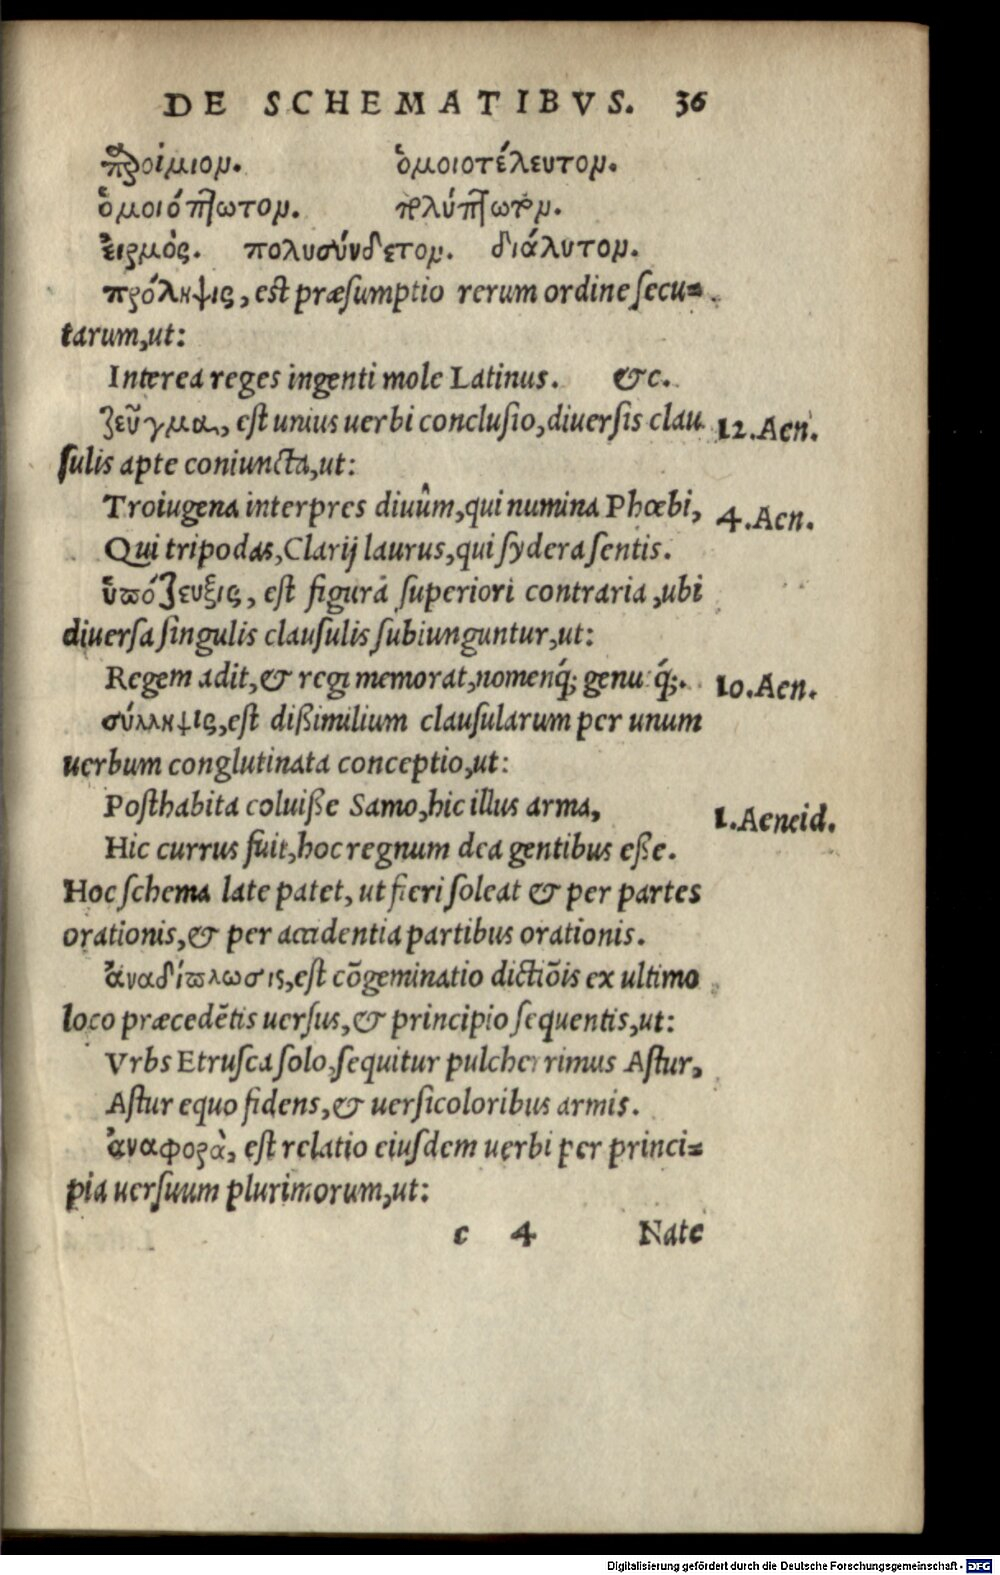 DE SCHEMATIBVS. 36
προίμιομ. ὁμοιοτέλευτομ.
ὁμοιόπτωτομ. πολύπτωτομ.
ἑιρμός. πολυσύνδετομ. διάλυτομ.
πρόληψις, est præsumptio rerum ordine secu=
tarum,ut:
Interea reges ingenti mole Latinus. &c.
ζεῦγμα, est unius uerbi conclusio,diuersis clau 12.Aen.
sulis apte coniuncta,ut:
Troiugena interpres diuûm,qui numina Phœbi, 4.Aen.
Qui tripodas,Clarij laurus,qui sydera sentis.
ὑπόζευξις, est figurā superiori contraria ,ubi
diuersa singulis clausulis subiunguntur,ut:
Regem adit,& regi memorat,nomenq́; genusq́;. 10.Aen.
σύλληψις,est dißimilium clausularum per unum
uerbum conglutinata conceptio,ut:
Posthabita coluiße Samo,hic illius arma, 1.Aeneid.
Hic currus fuit,hoc regnum dea gentibus eße.
Hoc schema late patet, ut fieri soleat & per partes
orationis,& per accidentia partibus orationis.
ἀναδίπλωσις,est cōgeminatio dictiōis ex ultimo
loco præcedētis uersus,& principio sequentis,ut:
Vrbs Etrusca solo,sequitur pulcherrimus Astur,
Astur equo fidens,& uersicoloribus armis.
ἀναφορὰ, est relatio eiusdem uerbi per princi=
pia uersuum plurimorum,ut:
c 4 Nate
Digitalisierung gefördert durch die Deutsche Forschungsgemeinschaft - DFG